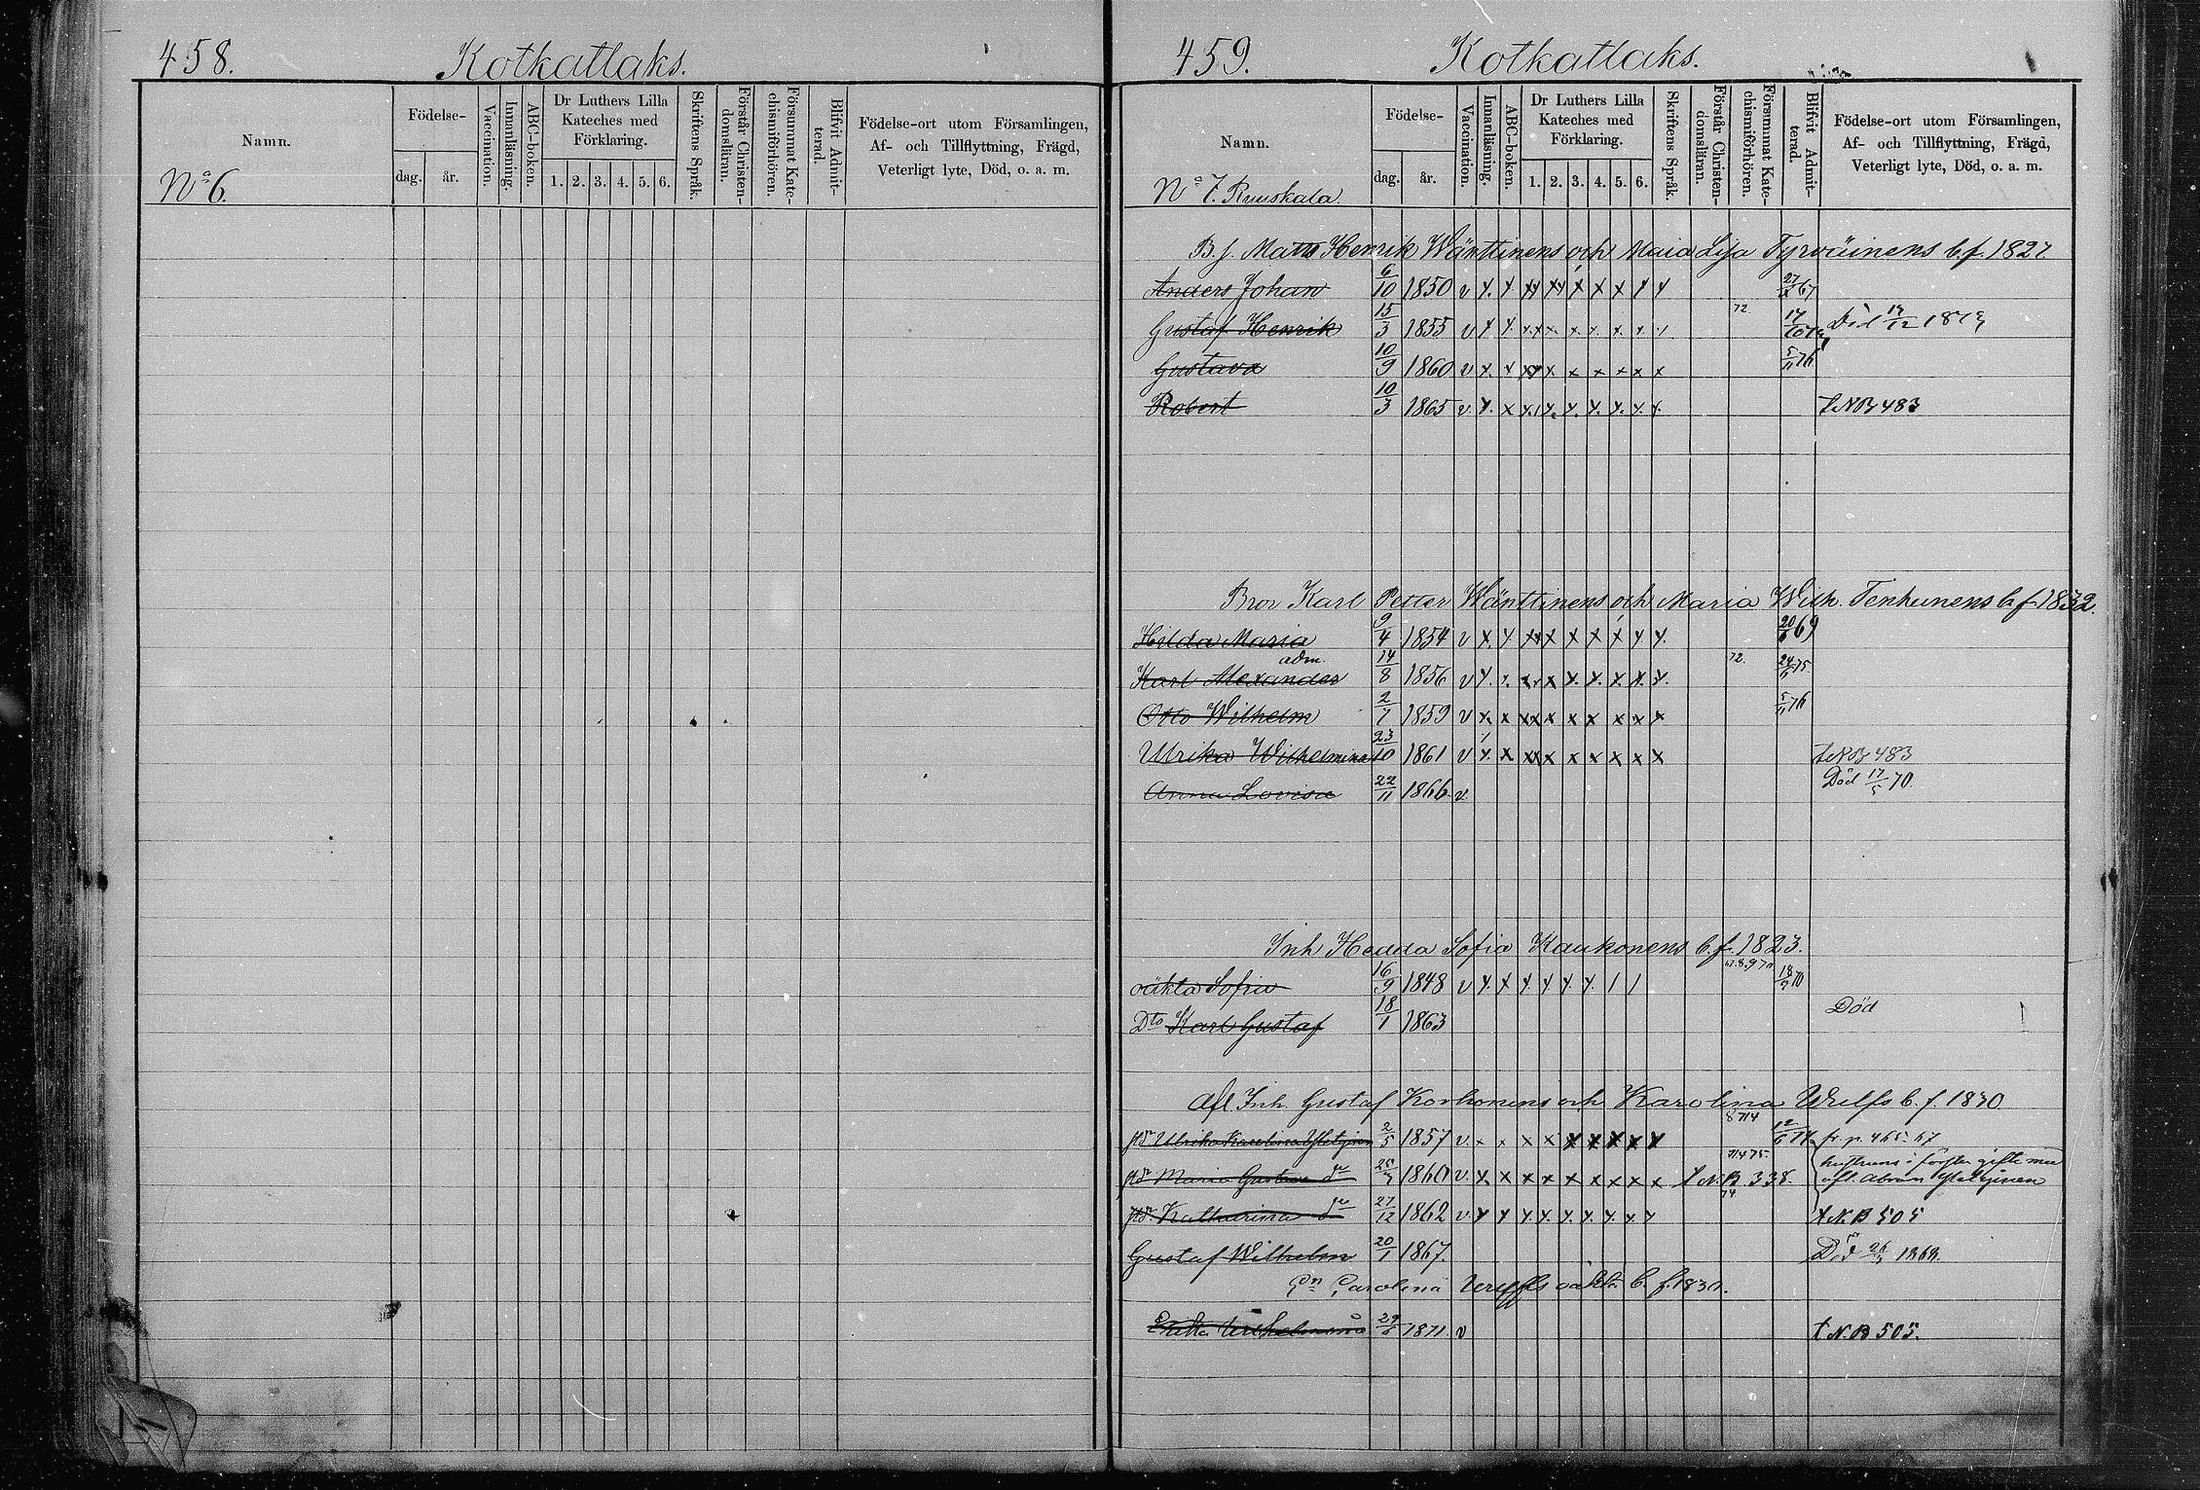 458. Kotkatlaks.
Namn. Födelse- Vaccination. Innanläsning. ABC-boken. Dr Luthers Lilla Kateches med Förklaring. Skriftens Språk. Förstår Christendomsläran. Försummat Katechismiförhören. Blifvit Admitterad. Födelse-ort utom Församlingen, Af- och Tillflyttning, Frägd, Veterligt lyte, Död, o. a. m.
dag. år. 1. 2. 3. 4. 5. 6.
No 6.
459. Kotkatlaks.
Namn. Födelse- Vaccination. Innanläsning. ABC-boken. Dr Luthers Lilla Kateches med Förklaring. Skriftens Språk. Förstår Christendomsläran. Försummat Katechismiförhören. Blifvit Admitterad. Födelse-ort utom Församlingen, Af- och Tillflyttning, Frägd, Veterligt lyte, Död, o. a. m.
dag. år. 1. 2. 3. 4. 5. 6.
No 7. Ruuskala.
B. f. Matts Henrik Wänttinens och Maia Lisa Tyrväinens b. f. 1827
Anders Johan 6/10 1850 v x x x x x x x x x 67
Gustaf Henrik 15/3 1855 v x x x x x x x x x 72. Död 1873
Gustava 10/9 1860 v x x x x x x x x x 5/11 76
Robert 10/3 1865 v x x x x x x x x x t NB 483
Bror Karl Petter Wänttinens och Maria Wilh. Tenhunens b. f. 1832.
Hilda Maria 9/4 1854 v x x x x x x x x x 69
adm.
Karl Alexander 14/8 1856 v x x x x x x x x x 72. 75.
Otto Wilhelm 2/7 1859 v x x x x x x x x x 5/11 76
Ulrika Wilhelmina 23/10 1861 v x x x x x x x x x t NB 483
Anna Lovisa 22/11 1866 v. Död 17/5 70.
Inh Hedda Sofia Kaukonens b. f. 1823.
oäkta Sofia 16/9 1848 v x x x x x x 70
Dto Karl Gustaf 18/1 1863 Död
Afl. Inh. Gustaf Korhonens och Karolina Wrelfs b. f. 1830
Ulrika Karolina 2/5 1857 v. x x x x x x x x x fr. p. 465. 67
Maria Gustava do 1860 v. x x x x x x x x x t N. B. 338.
Katharina do 27/12 1862 v. x x x x x x x x x t N. B 505
Gustaf Wilhelm 20/1 1867. Död 1868.
Carolina oäkta b. f. 1830.
Wilhelmina 1871 v t N. B 505.